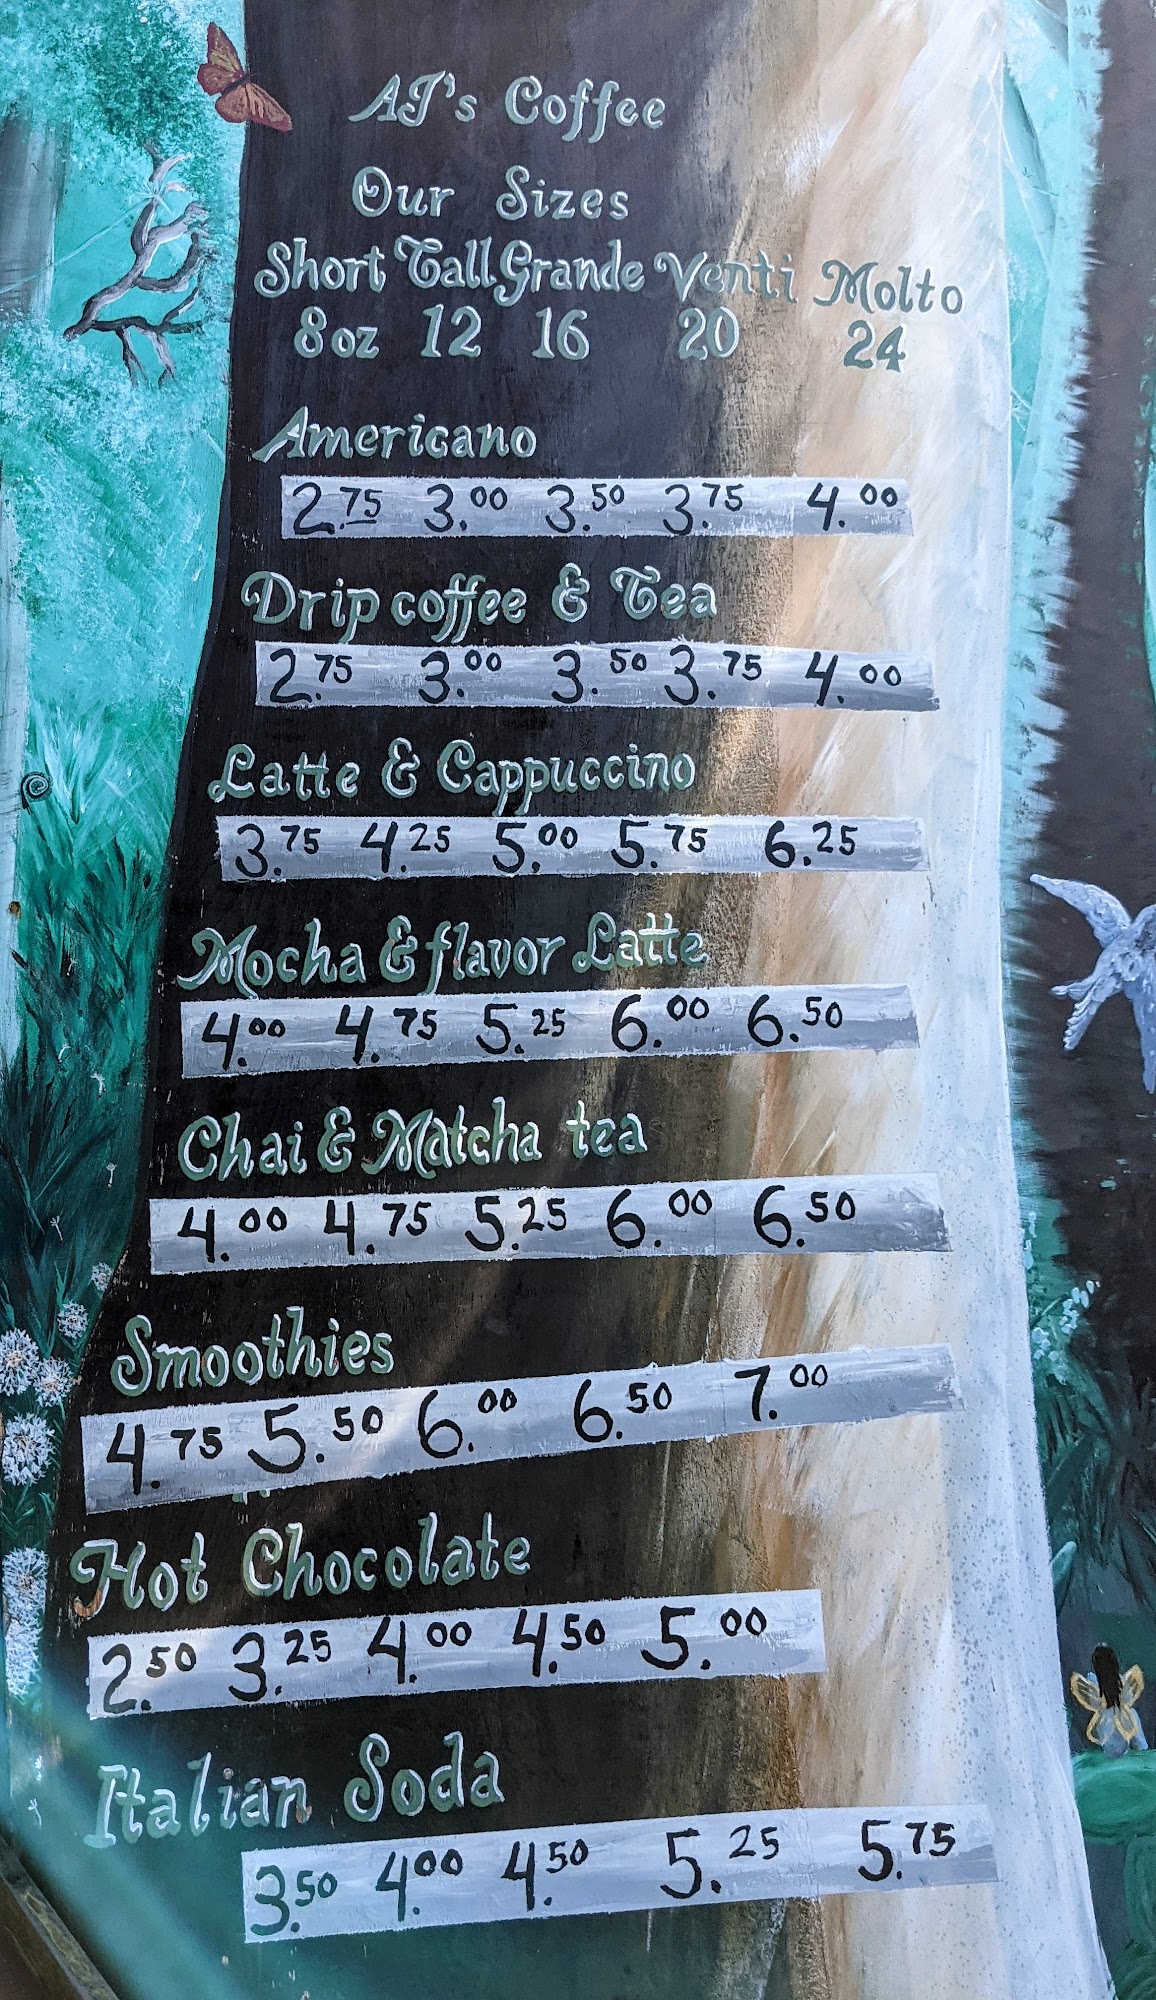 AJ's Coffee
Our Sizes
Short Tall Grande Venti Molto
8oz 12 16 20 24
Americano
2.75 3.00 3.50 3.75 4.00
Drip coffee & Tea
2.75 3.00 3.50 3.75 4.00
Latte & Cappuccino
3.75 4.25 5.00 5.75 6.25
Mocha & flavor Latte
4.00 4.75 5.25 6.00 6.50
Chai & Matcha tea
4.00 4.75 5.25 6.00 6.50
Smoothies
4.75 5.50 6.00 6.50 7.00
Hot Chocolate
2.50 3.25 4.00 4.50 5.00
Italian Soda
3.50 4.00 4.50 5.25 5.75